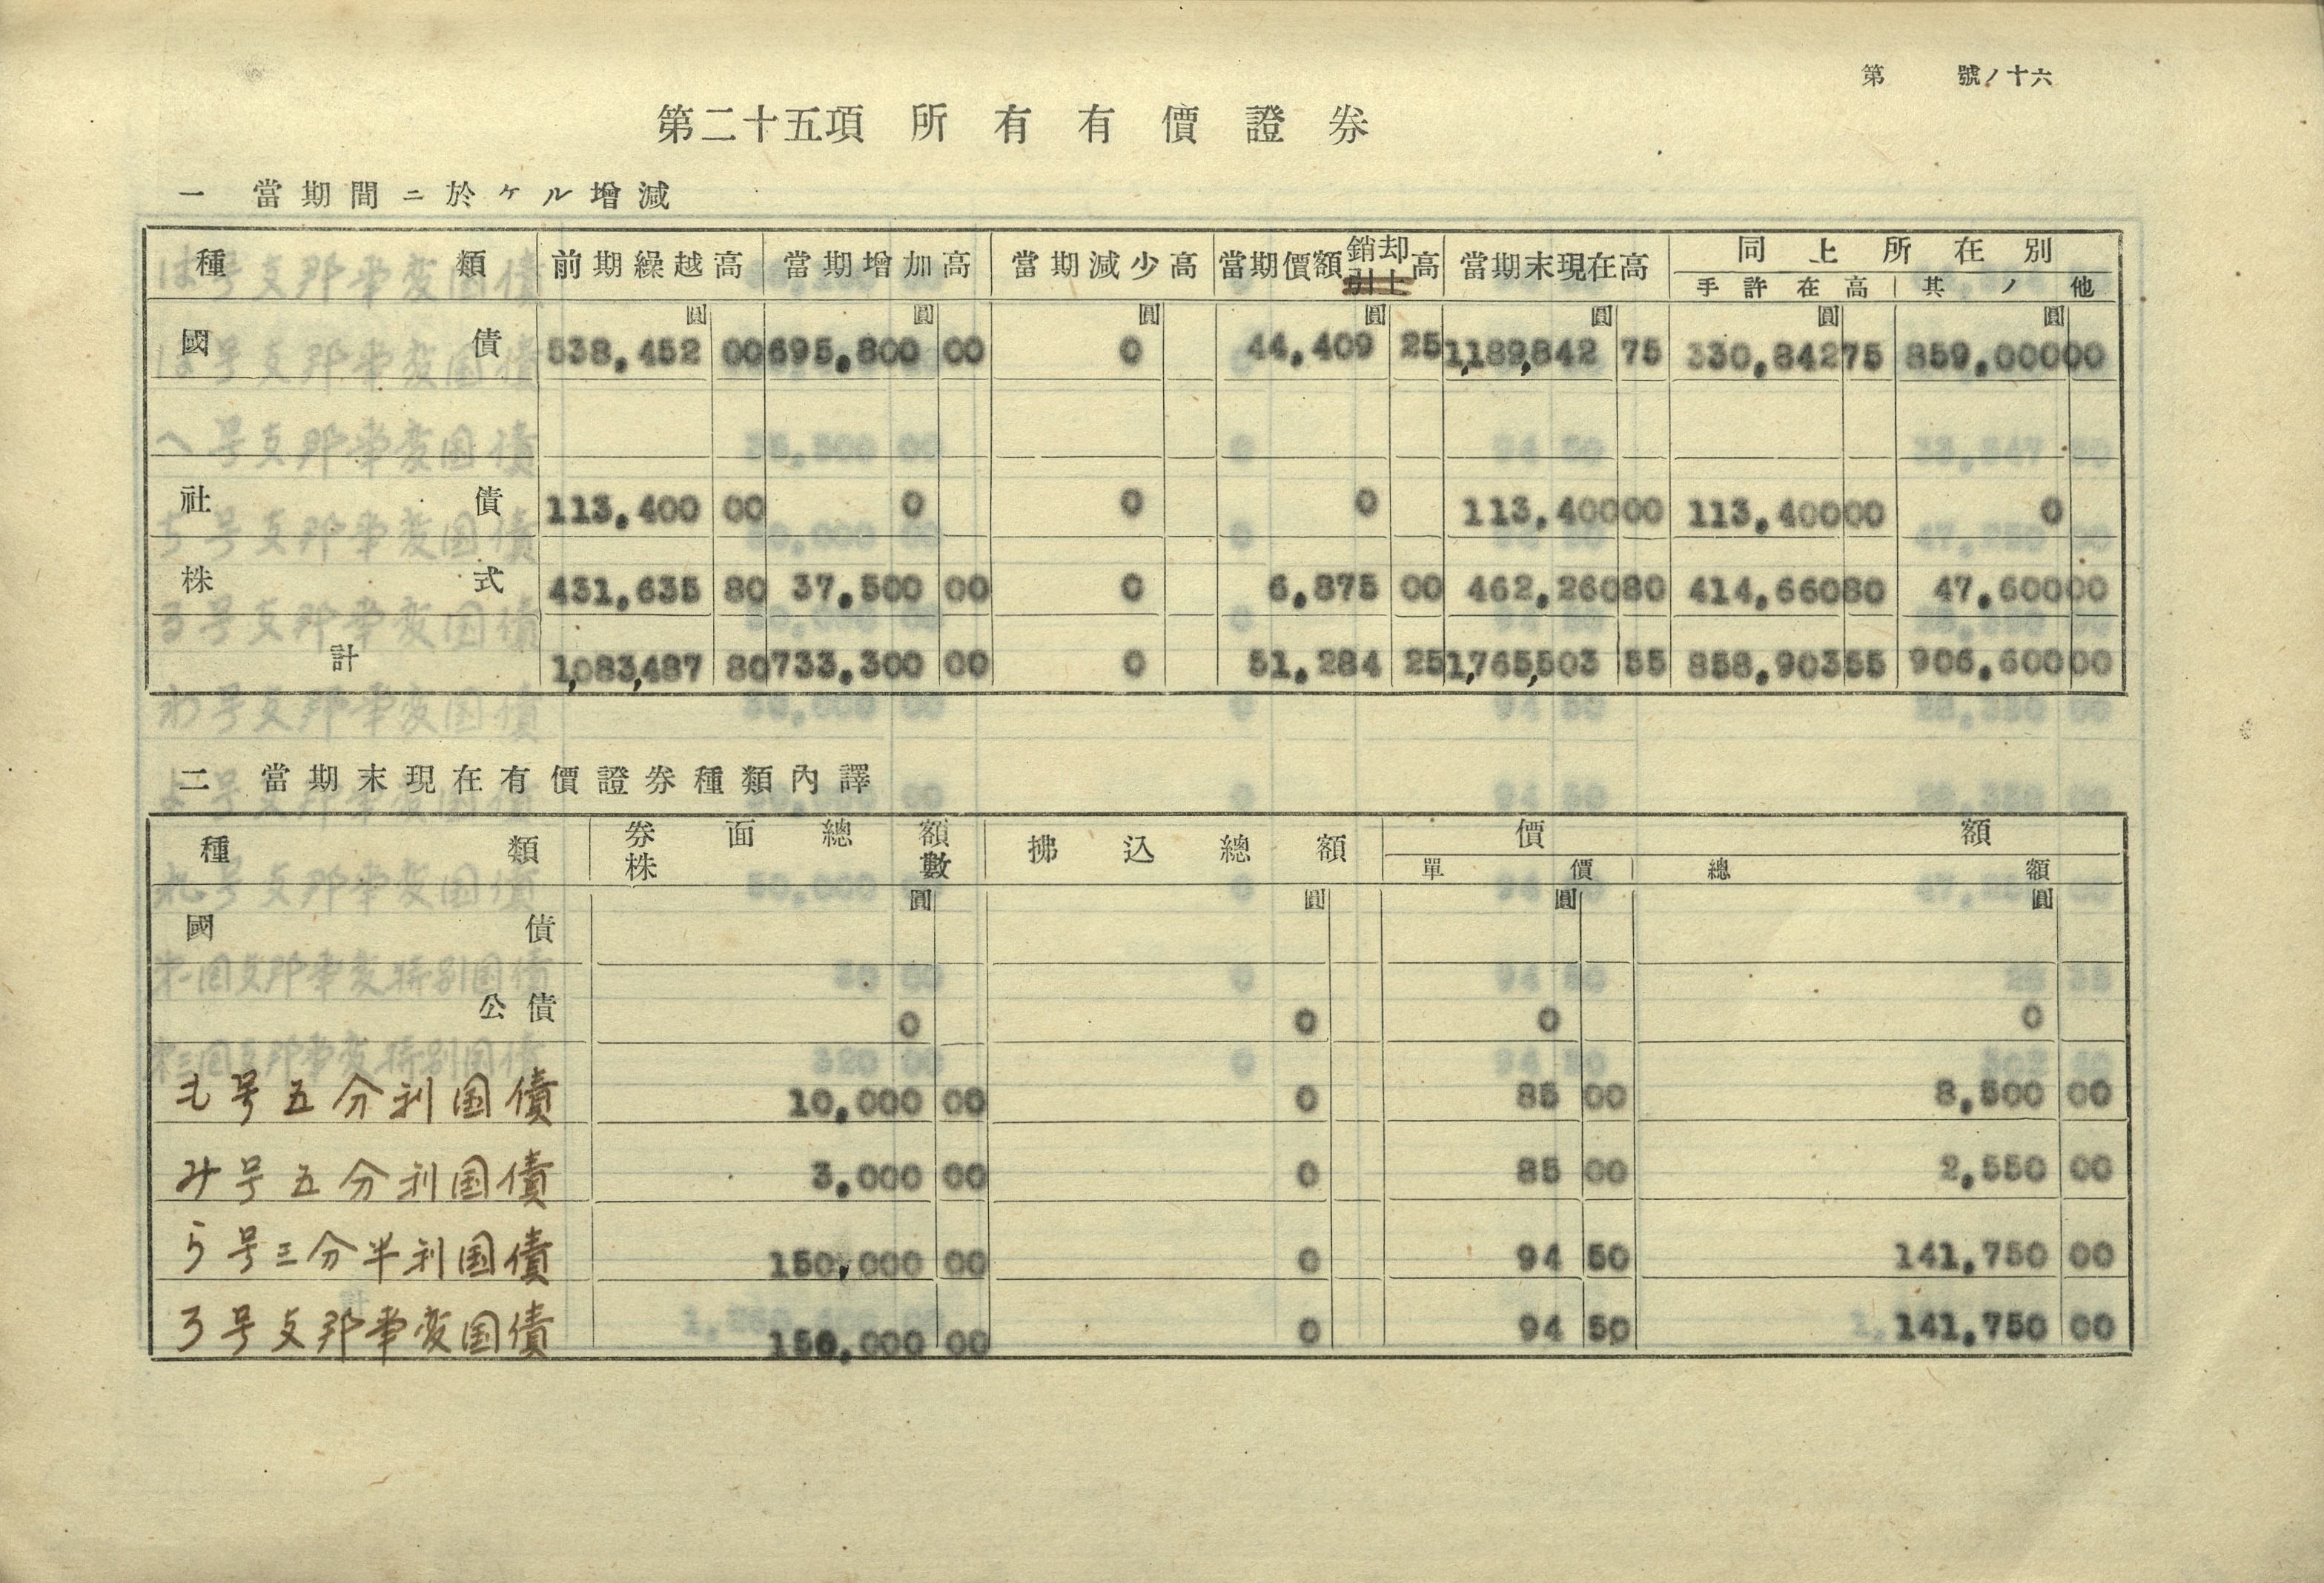 第 號ノ十六
第二十五項 所有有價證券
一 當期間ニ於ケル增減
種類 前期繰越高 當期增加高 當期減少高 當期價額銷却引上高 當期末現在高 同上所在別
手許在高 其ノ他
圓 圓 圓 圓 圓 圓 圓
國債 538,452 00 695,800 00 0 44,409 25 1,189,842 75 330,842 75 859,000 00
社債 113,400 00 0 0 0 113,400 00 113,400 00 0
株式 431,635 80 37,500 00 0 6,875 00 462,260 80 414,660 80 47,600 00
計 1,083,487 80 733,300 00 0 51,284 25 1,765,503 55 858,903 55 906,600 00
二 當期末現在有價證券種類內譯
種類 券面總額 拂込總額 價額
株數 單價 總額
圓 圓 圓 圓
國債
公債 0 0 0 0
号五分利国債 10,000 00 0 85 00 8,500 00
み号五分利国債 3,000 00 0 85 00 2,550 00
ら号三分半利国債 150,000 00 0 94 50 141,750 00
ろ号支那事変国債 150,000 00 0 94 50 141,750 00